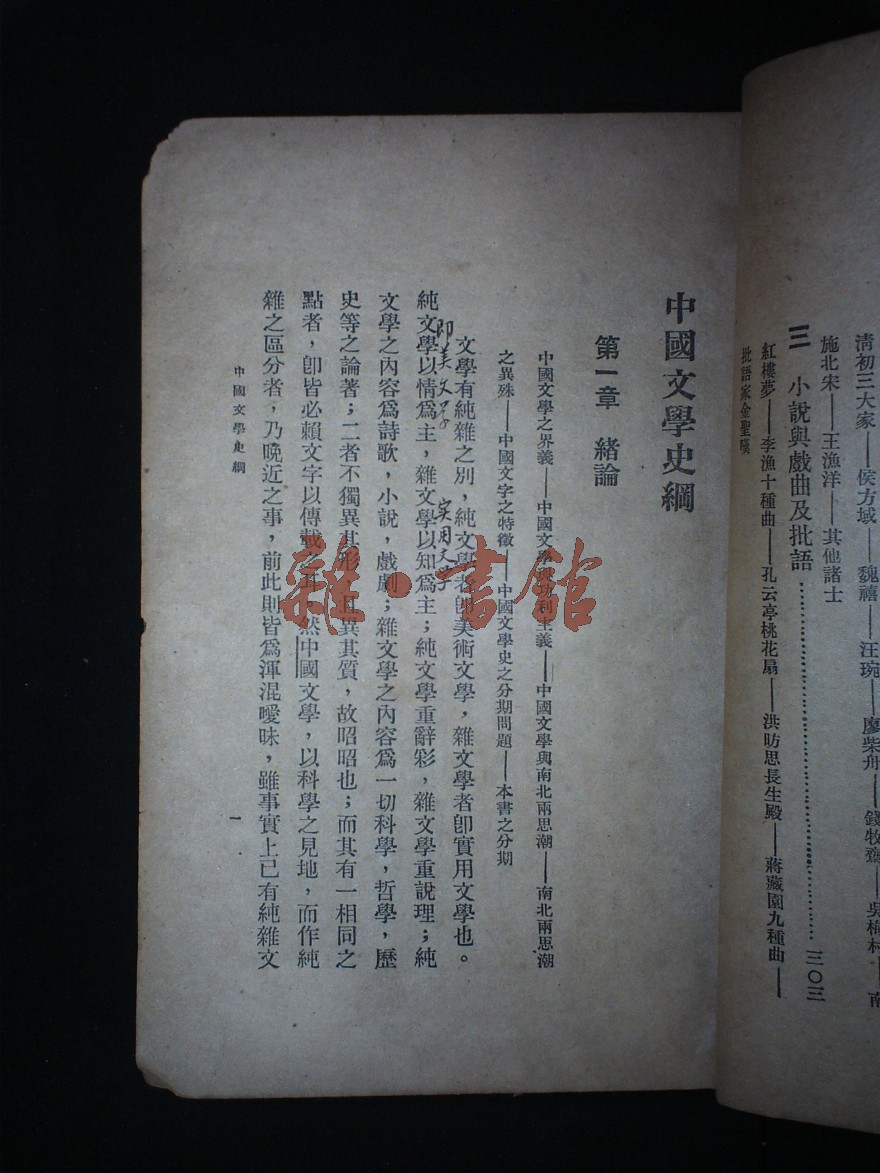 清初三大家——侯方域——魏禧——汪琬——廖柴舟——錢牧齋——吳梅村——南
施北宋——王漁洋——其他諸士
三 小說與戲曲及批語……三〇三
紅樓夢——李漁十種曲——孔云亭桃花扇——洪昉思長生殿——蔣藏園九種曲——
批語家金聖嘆
中國文學史綱
第一章 緒論
中國文學之界義——中國文學與功利主義——中國文學與南北兩思潮——南北兩思潮
之異殊——中國文字之特徵——中國文學史之分期問題——本書之分期
文學有純雜之別，純文學者卽美術文學，雜文學者卽實用文學也。
即美文學
實用文學
純文學以情爲主，雜文學以知爲主；純文學重辭彩，雜文學重說理；純
文學之內容爲詩歌，小說，戲劇；雜文學之內容爲一切科學，哲學，歷
史等之論著；二者不獨異其形，且異其質，故昭昭也；而其有一相同之
點者，卽皆必賴文字以傳載之耳。然中國文學，以科學之見地，而作純
雜之區分者，乃晚近之事，前此則皆爲渾混曖昧，雖事實上已有純雜文
中國文學史綱
一
雜·書館